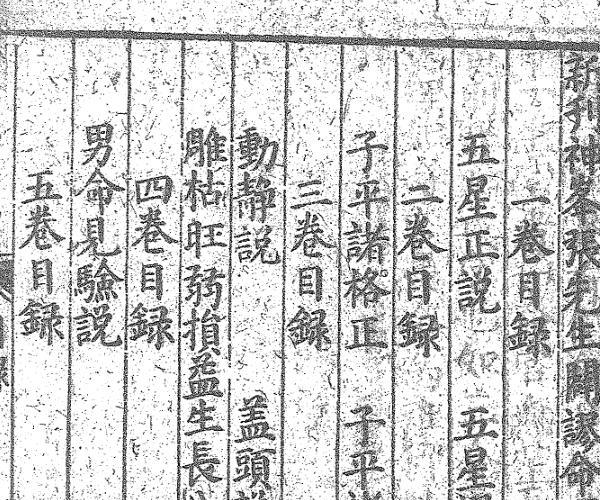 新刋神峯張先生闢謬命
一巻目録
五星正説 五星
二巻目録
子平諸格正 子平
三巻目録
動静説 盖頭説
雕枯旺弱損益生長
四巻目録
男命見驗説
五巻目録